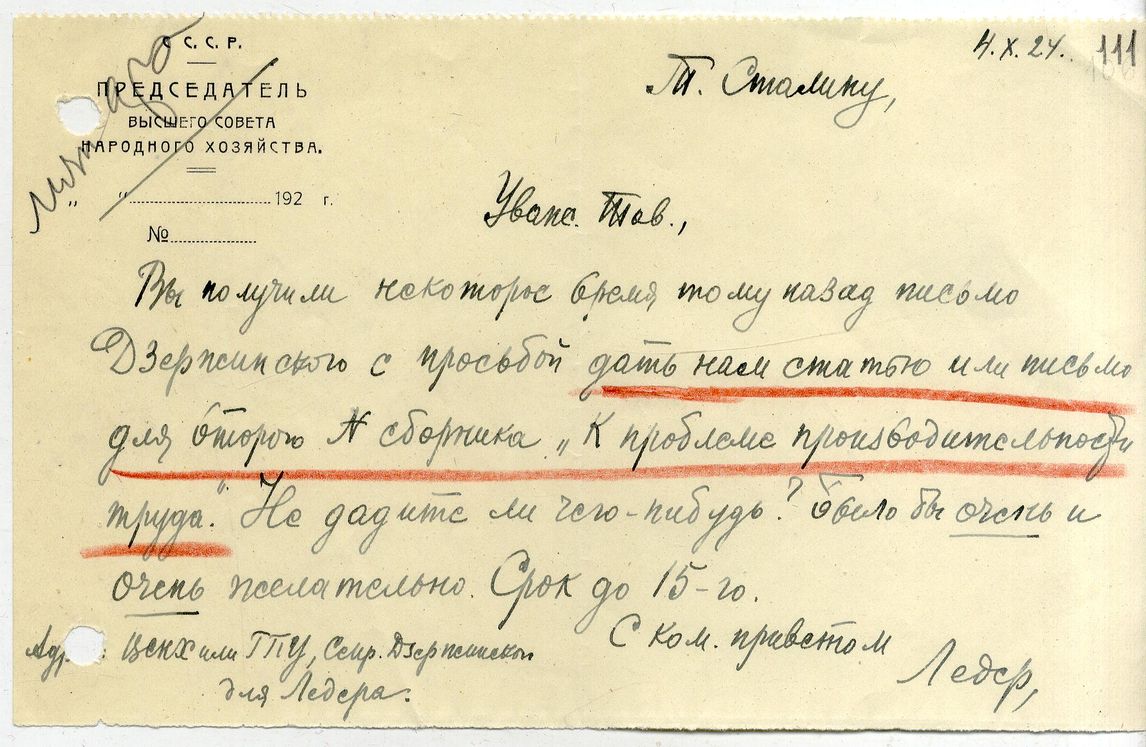 С. С. С. Р.
ПРЕДСЕДАТЕЛЬ
ВЫСШЕГО СОВЕТА
НАРОДНОГО ХОЗЯЙСТВА.
„ “ 192 г.
№
4.X.24. 111
Т. Сталину,
Уваж. Тов.,
Вы получили некоторое время тому назад письмо
Дзержинского с просьбой дать нам статью или письмо
для второго N сборника „К проблеме производительности
труда“. Не дадите ли чего-нибудь? Было бы очень и
очень желательно. Срок до 15-го.
С ком. приветом
Ледер,
Адр.: ВСНХ или ГПУ, Секр. Дзержинского
для Ледера.